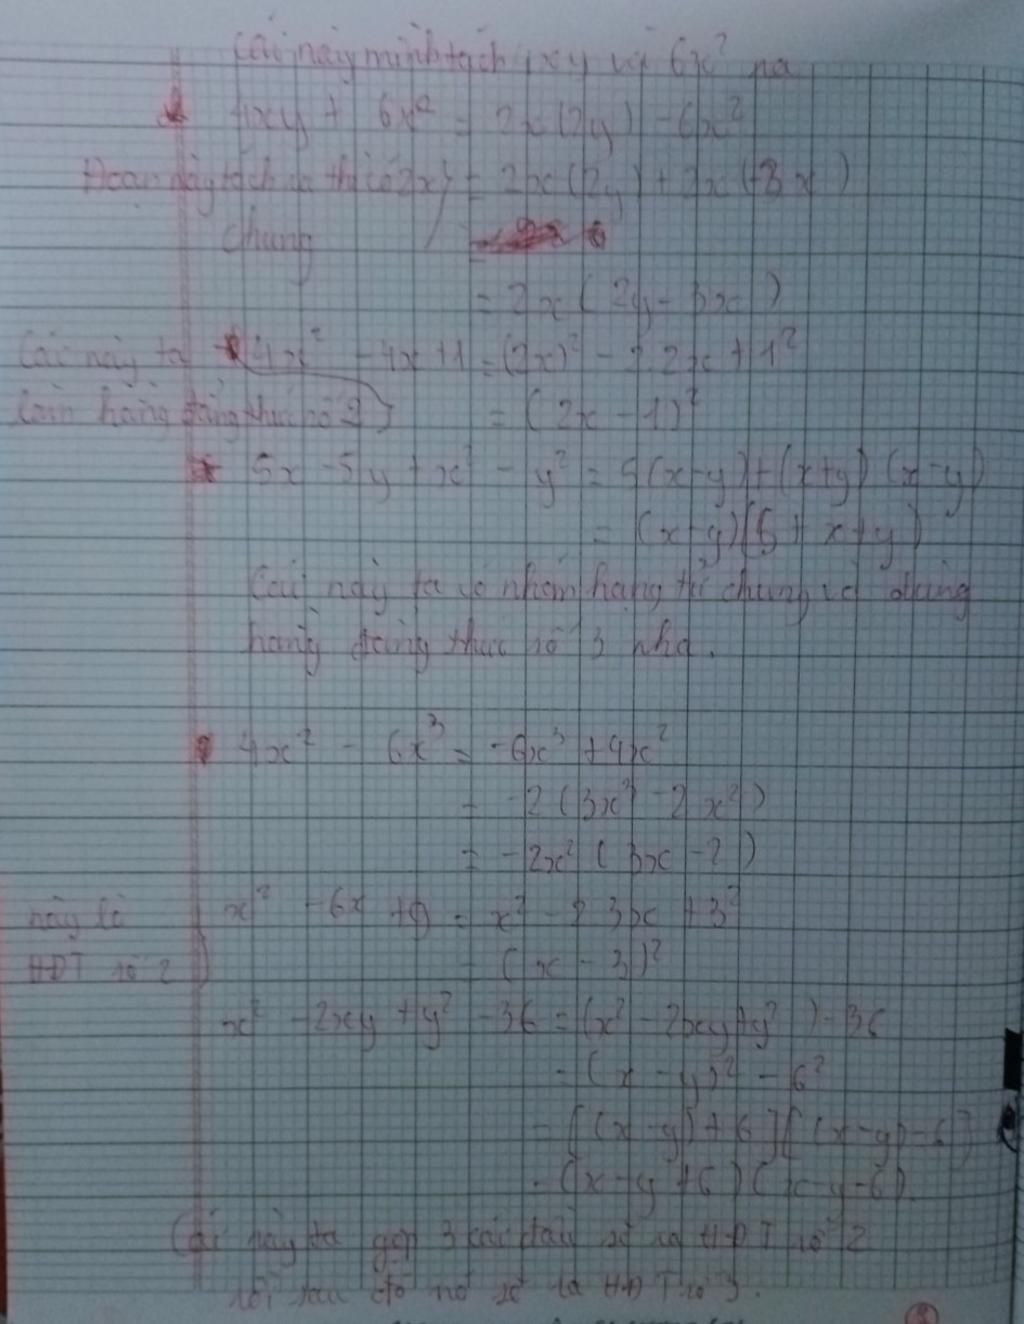 Cái này mình tách 4xy và 6x² ra
4xy + 6x² = 2x(2y) - 6x²
Đoạn này tách ra thì có 2x } = 2x(2y) + 2x(-3x)
chung
= 2x(2y - 3x)
Cái này ta * 4x² - 4x + 1 = (2x)² - 2.2x + 1²
hằng đẳng thức số 2 } = (2x - 1)²
* 5x - 5y + x² - y² = 5(x-y) + (x+y)(x-y)
= (x-y)(5 + x + y)
Cái này ta có nhóm hạng tử chung và dùng
hằng đẳng thức số 3 nha.
4x² - 6x³ = -6x³ + 4x²
= -2(3x³ - 2x²)
= -2x²(3x - 2)
này là x² - 6x + 9 = x² - 2 3x + 3²
HĐT số 2 ) = (x - 3)²
x² - 2xy + y² - 36 = (x² - 2xy + y²) - 36
= (x - y)² - 6²
= [(x-y) + 6][(x-y) - 6]
= (x - y + 6)(x - y - 6)
Cái này ta gộp 3 cái đầu sẽ ra HĐT số 2
rồi sau đó nó sẽ ra HĐT số 3.